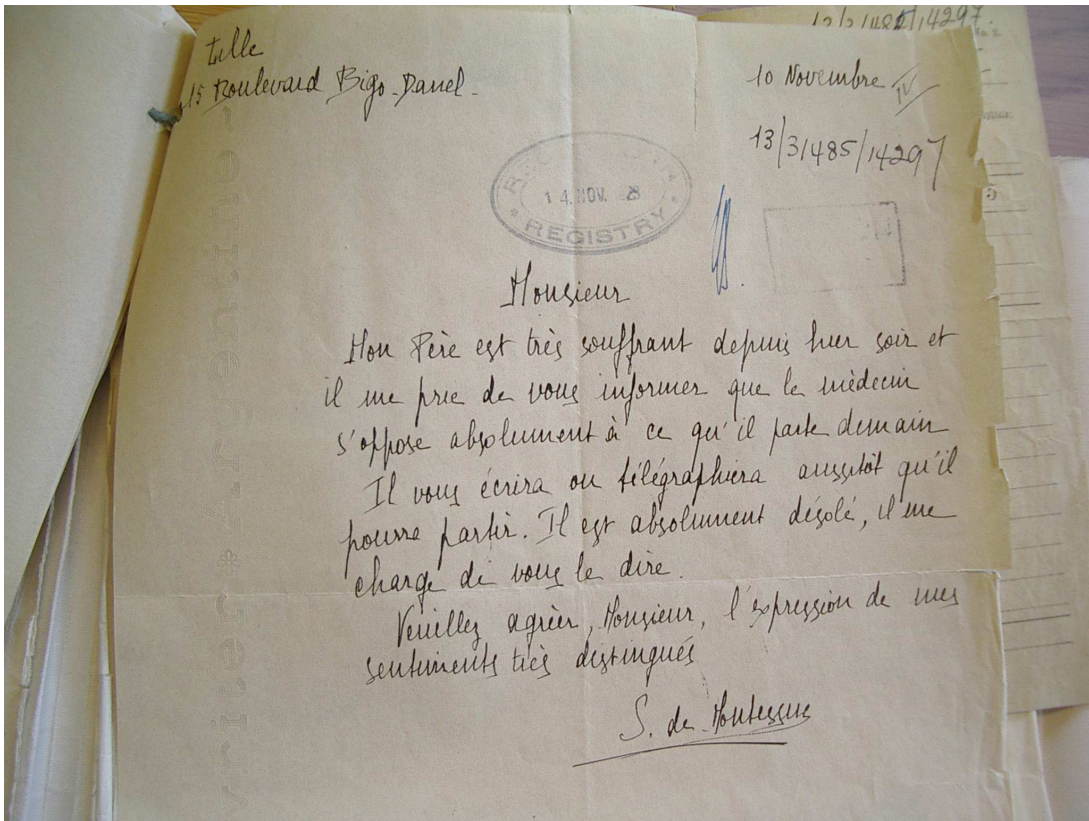 13/3/485/14297
Lille
15 Boulevard Bigo-Danel.
10 Novembre
13/3/485/14297
14 NOV. 28
REGISTRY
Monsieur
Mon Père est très souffrant depuis hier soir et
il me prie de vous informer que le médecin
s'oppose absolument à ce qu'il parte demain
Il vous écrira ou télégraphiera aussitôt qu'il
pourra partir. Il est absolument désolé, il me
charge de vous le dire.
Veuillez agréer, Monsieur, l'expression de mes
sentiments très distingués
S. de Montessus